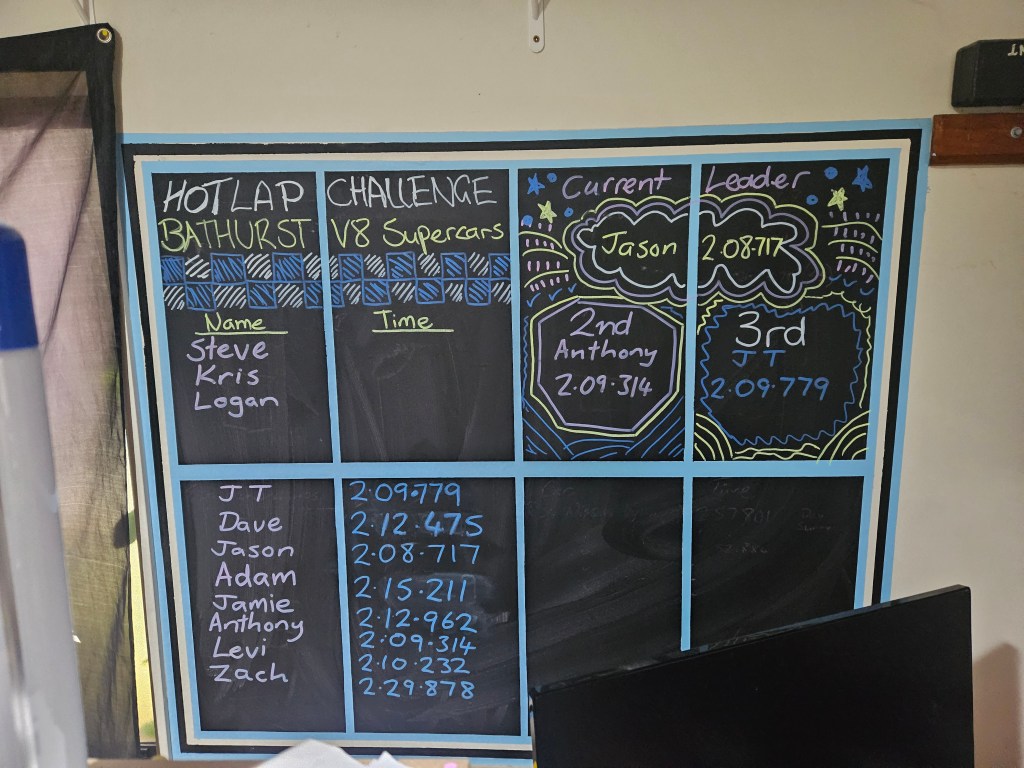 HOTLAP CHALLENGE
BATHURST V8 Supercars
Name Time
Steve
Kris
Logan
JT 2.09.779
Dave 2.12.475
Jason 2.08.717
Adam 2.15.211
Jamie 2.12.962
Anthony 2.09.314
Levi 2.10.232
Zach 2.29.878
Current Leader
Jason 2.08.717
2nd
Anthony
2.09.314
3rd
JT
2.09.779